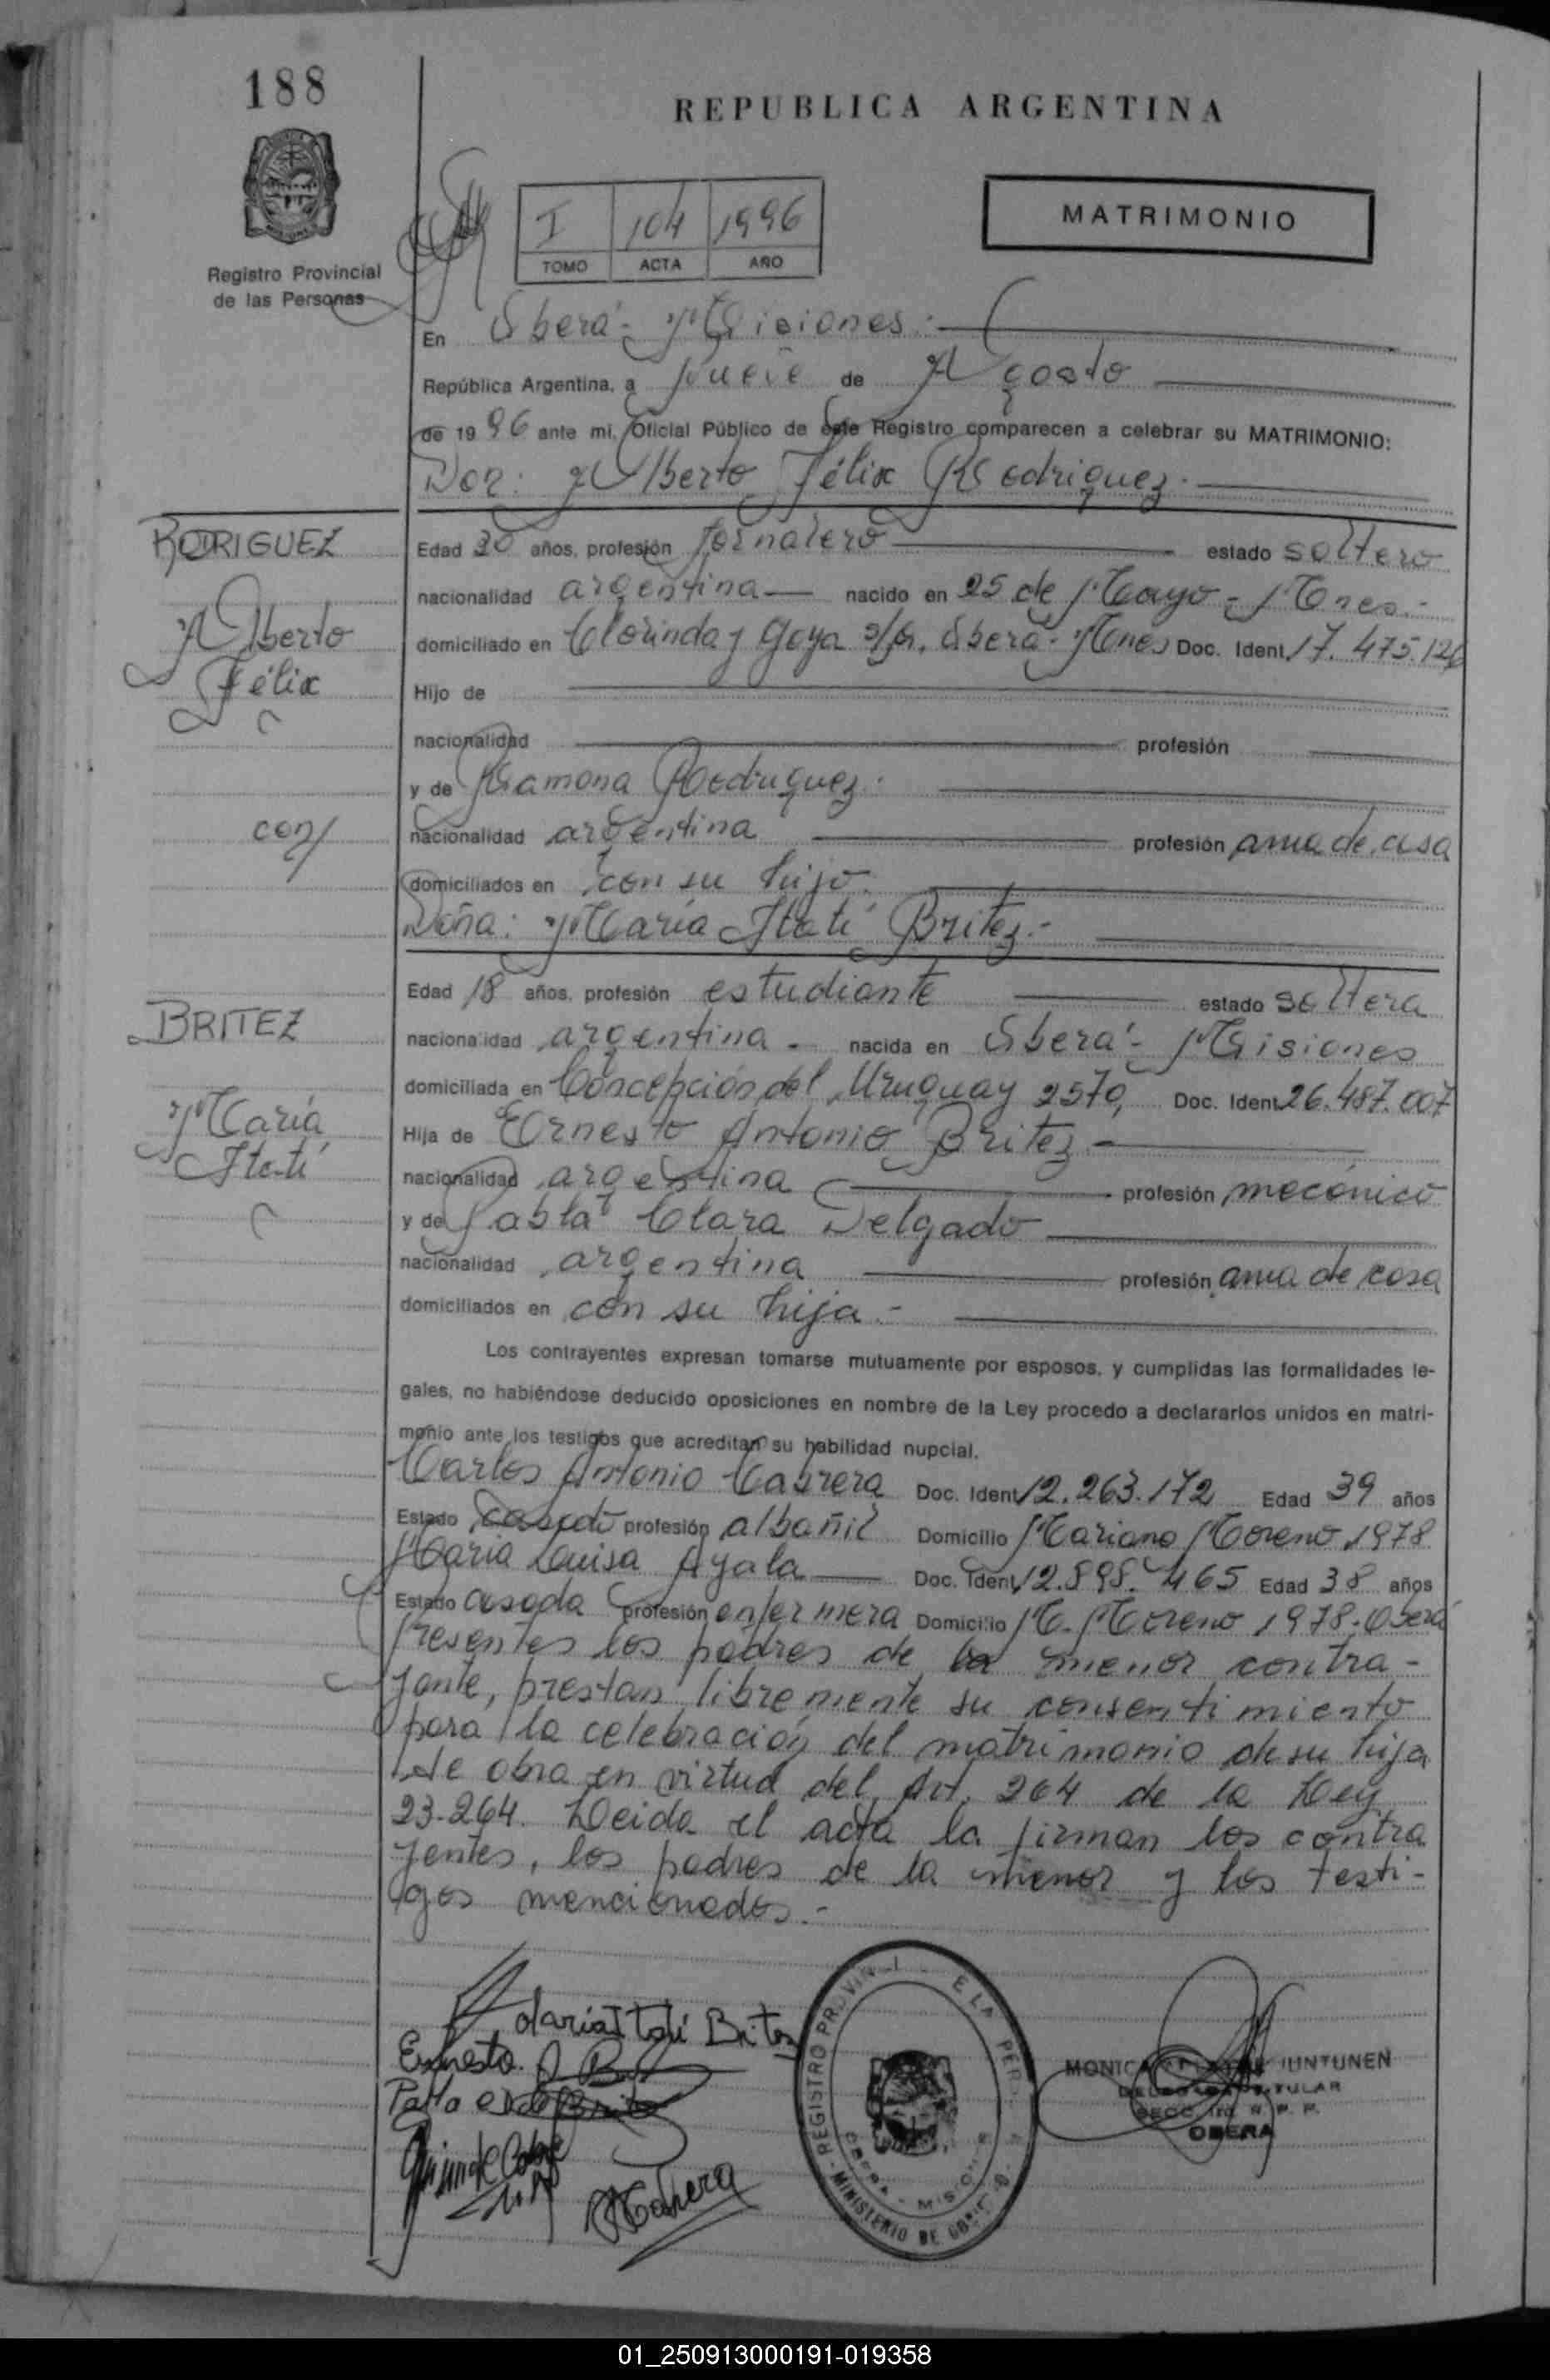 188
REPUBLICA ARGENTINA
I 104 1996
TOMO ACTA AÑO
MATRIMONIO
Registro Provincial
de las Personas
En Oberá - Misiones.-
República Argentina, a nueve de Agosto
de 1996 ante mi, Oficial Público de este Registro comparecen a celebrar su MATRIMONIO:
Don: Alberto Félix Rodriguez.
RODRIGUEZ
Alberto
Félix
Edad 30 años, profesión jornalero estado soltero
nacionalidad argentina nacido en 25 de Mayo - Mnes.-
domiciliado en Clorinda y Goya s/n, Oberá - Mnes Doc. Ident. 17.475.126
Hijo de
nacionalidad profesión
y de Ramona Rodriguez.
con/
nacionalidad argentina profesión ama de casa
domiciliados en con su hijo.
Doña: María Itatí Britez.-
BRITEZ
María
Itatí
Edad 18 años, profesión estudiante estado soltera
nacionalidad argentina - nacida en Oberá - Misiones
domiciliada en Concepción del Uruguay 2570, Doc. Ident. 26.487.007
Hija de Ernesto Antonio Britez -
nacionalidad argentina profesión mecánico
y de Pabla Clara Delgado
nacionalidad argentina profesión ama de casa
domiciliados en con su hija -
Los contrayentes expresan tomarse mutuamente por esposos, y cumplidas las formalidades le-
gales, no habiéndose deducido oposiciones en nombre de la Ley procedo a declararlos unidos en matri-
monio ante los testigos que acreditan su habilidad nupcial.
Carlos Antonio Cabrera Doc. Ident. 12.263.172 Edad 39 años
Estado casado profesión albañil Domicilio Mariano Moreno 1978
Maria Luisa Ayala Doc. Ident. 12.898.465 Edad 38 años
Estado casada profesión enfermera Domicilio M. Moreno 1978 - Oberá
Presentes los padres de la menor contra-
yente, prestan libremente su consentimiento
para la celebración del matrimonio de su hija
de obra en virtud del Art. 264 de la Ley
23.264. Leida el acta la firman los contra
yentes, los padres de la menor y los testi-
gos mencionados.-
Maria Itatí Britez
Ernesto A B
Cabrera
REGISTRO PROVINCIAL DE LAS PERSONAS
MINISTERIO DE GOBIERNO
OBERA - MISIONES
MONICA JUNTUNEN
DELEGADA TITULAR
SECC. 1ra. R. P. P.
OBERA
01_250913000191-019358